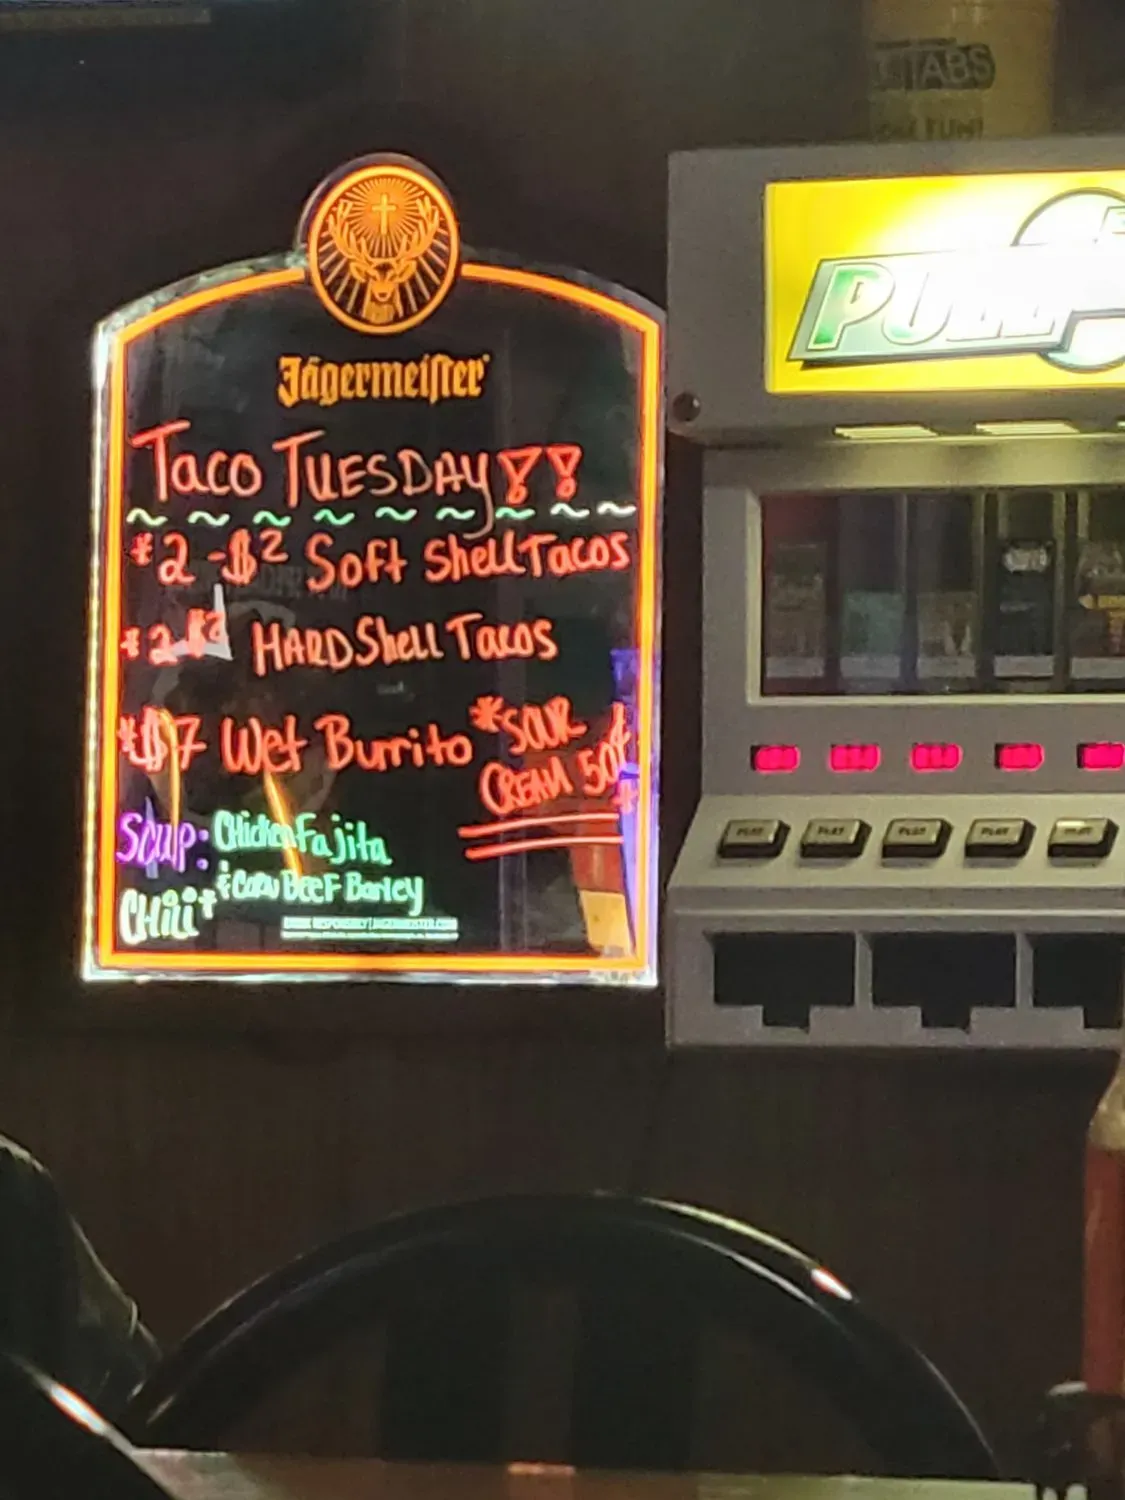 TABS
FUN!
PULL
Jägermeister
Taco TUESDAY!!
~ ~ ~ ~ ~ ~ ~ ~ ~
*2 -$2 Soft Shell Tacos
*2 $2 HARD Shell Tacos
*$7 Wet Burrito *SOUR
CREAM 50¢
Soup: Chicken Fajita
& Corn BEEF Barley
CHili
DRINK RESPONSIBLY JAGERMEISTER.COM
PLAY PLAY PLAY PLAY PLAY